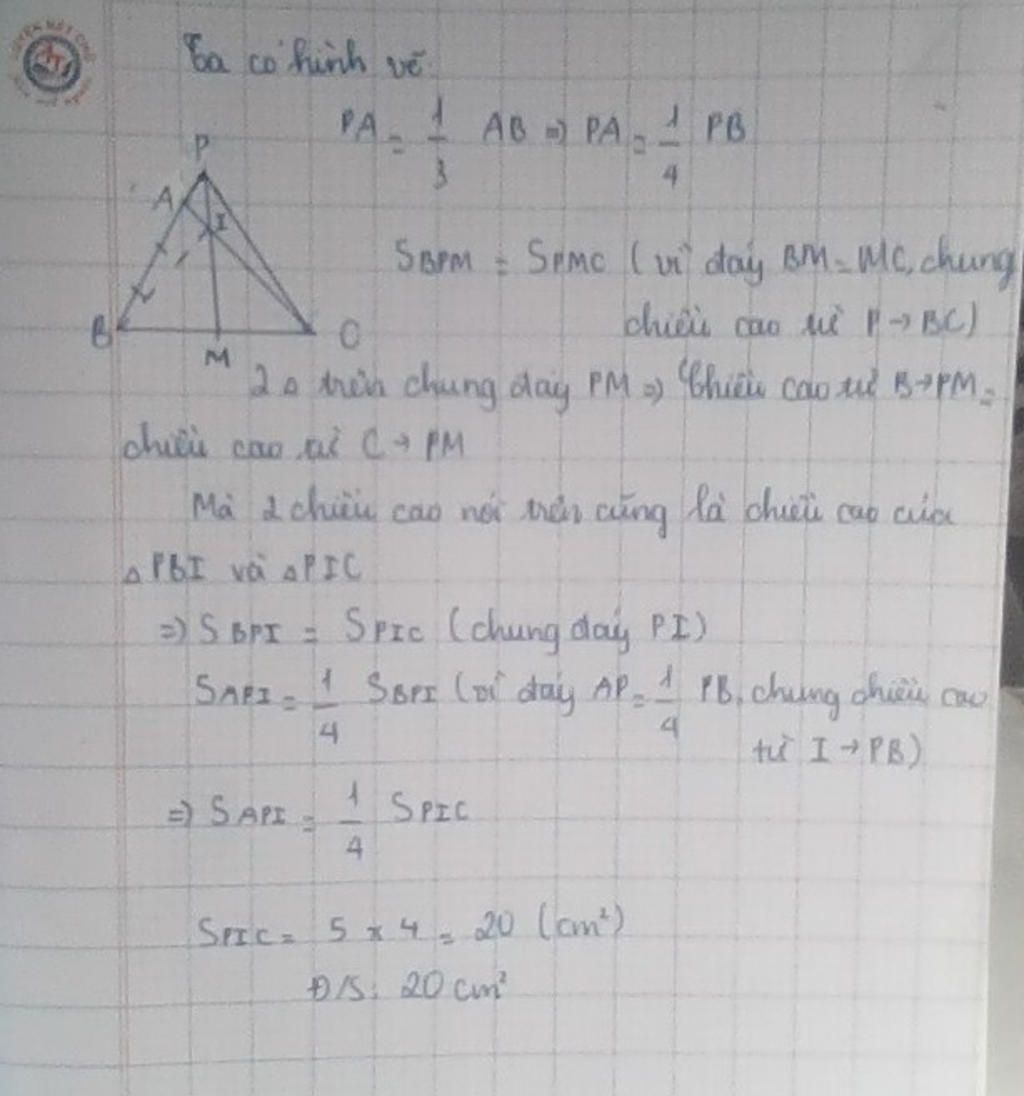 Ta có hình vẽ
PA = 1/3 AB => PA = 1/4 PB
P
A
I
B
M
C
SBPM = SPMC (vì đáy BM = MC, chung
chiều cao từ P → BC)
2Δ trên chung đáy PM => Chiều cao từ B → PM =
chiều cao từ C → PM
Mà 2 chiều cao nói trên cũng là chiều cao của
Δ PBI và Δ PIC
=> SBPI = SPIC (chung đáy PI)
SAPI = 1/4 SBPI (vì đáy AP = 1/4 PB, chung chiều cao
từ I → PB)
=> SAPI = 1/4 SPIC
SPIC = 5 x 4 = 20 (cm²)
Đ/S: 20 cm²